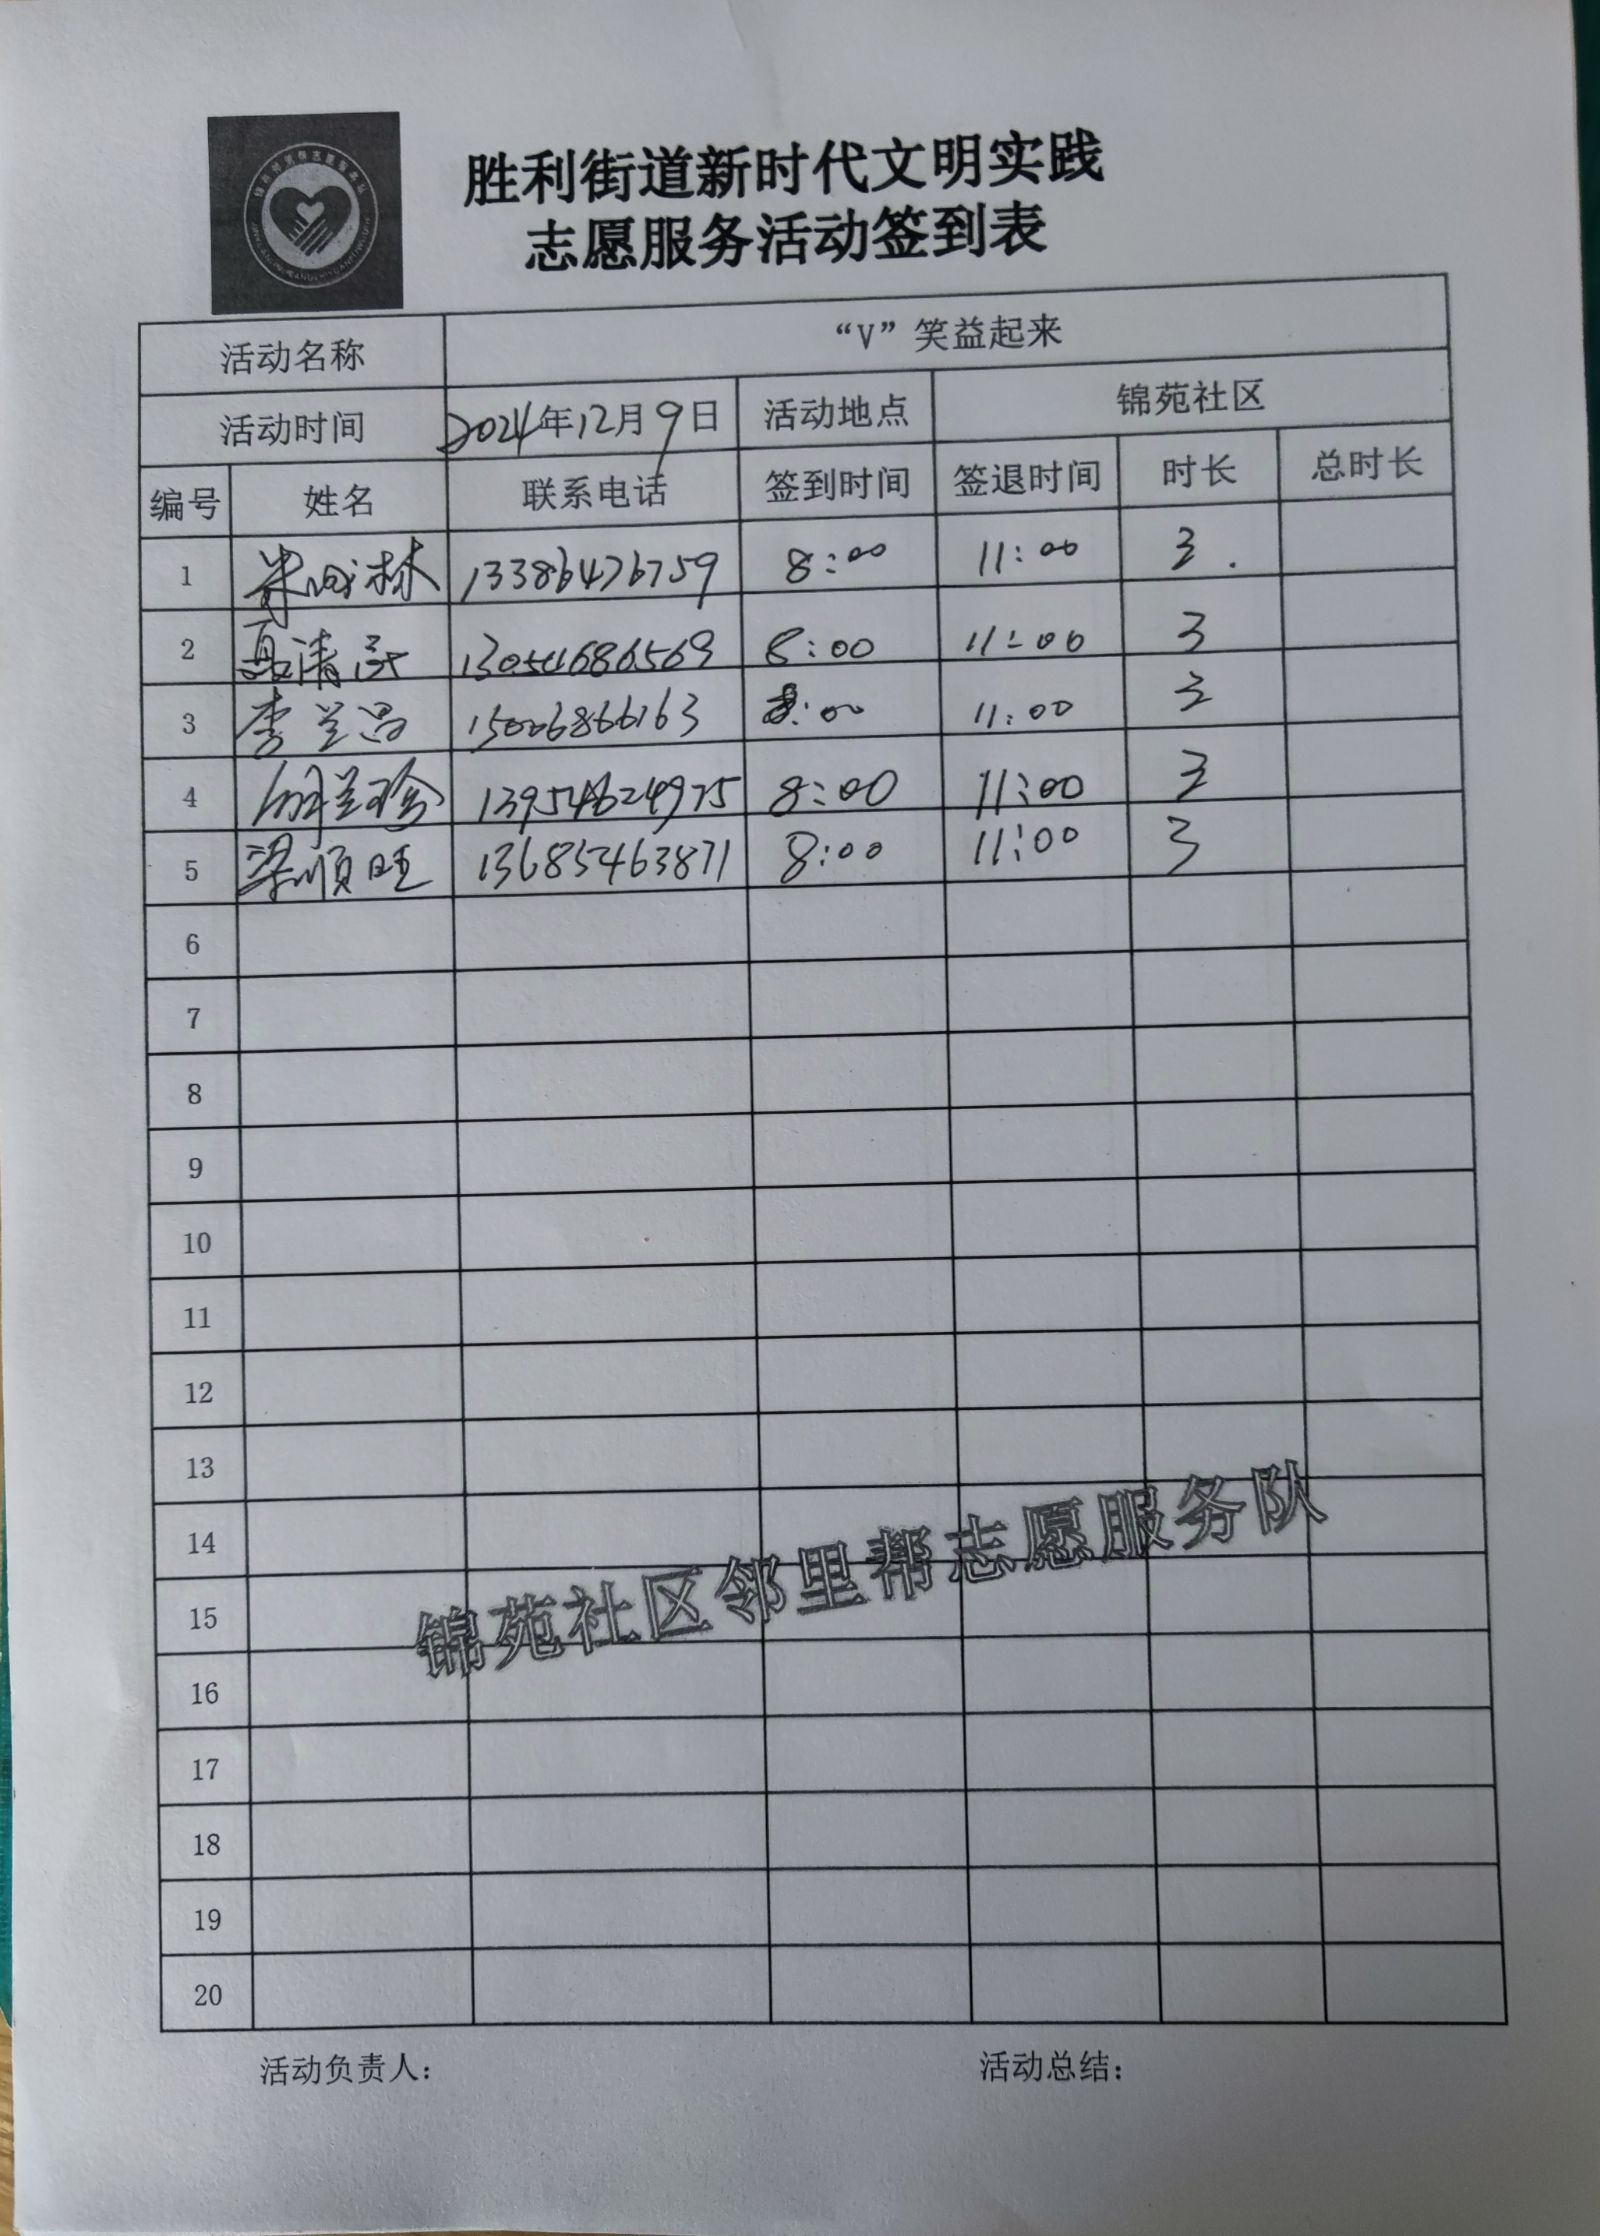 胜利街道新时代文明实践
志愿服务活动签到表
活动名称 “V”笑益起来
活动时间 2024年12月9日 活动地点 锦苑社区
编号 姓名 联系电话 签到时间 签退时间 时长 总时长
1 林 13386476759 8:00 11:00 3.
2 夏清 13051686569 8:00 11:00 3
3 李兰昌 15006866163 8:00 11:00 3
4 胡兰珍 13954624975 8:00 11:00 3
5 梁顺旺 13685463871 8:00 11:00 3
6
7
8
9
10
11
12
13
14
15
16
17
18
19
20
锦苑社区邻里帮志愿服务队
活动负责人: 活动总结: